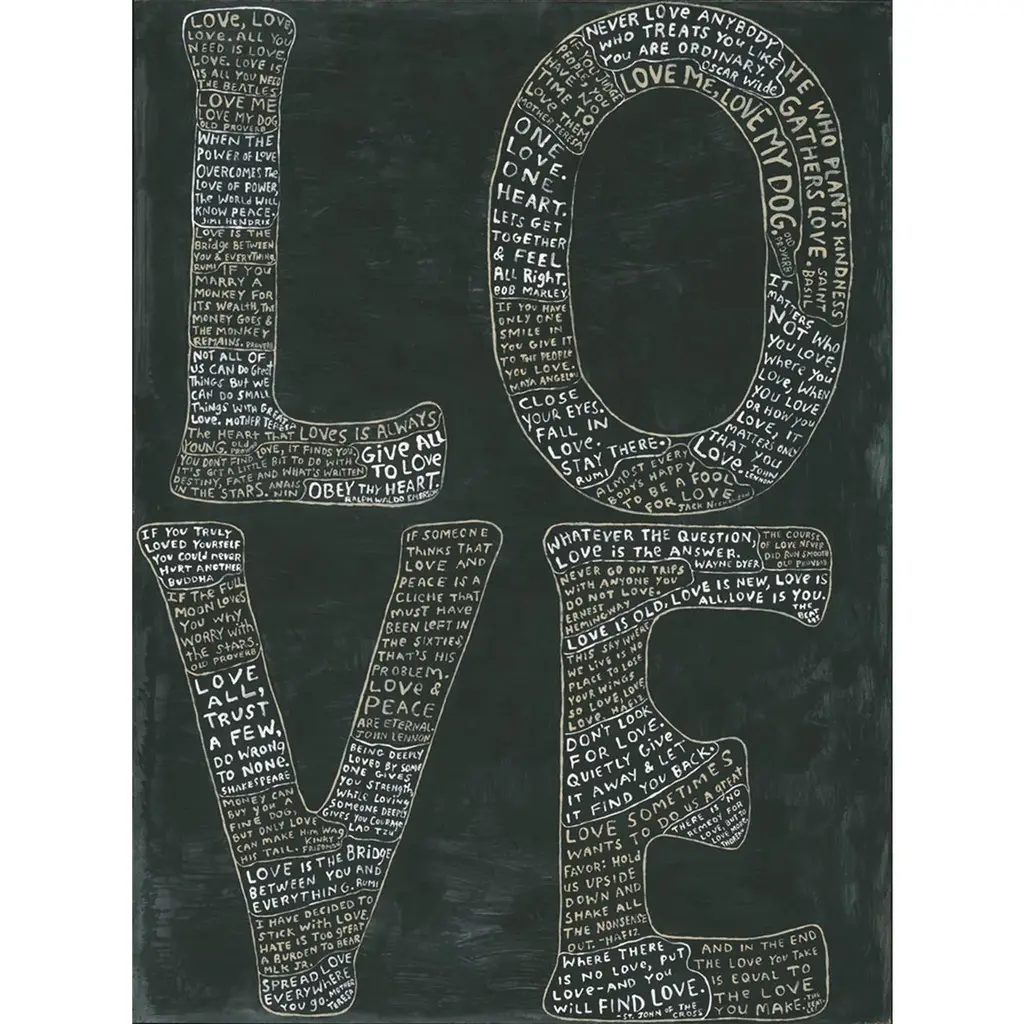 LOVE, LOVE,
LOVE. ALL YOU
NEED IS LOVE.
LOVE. LOVE IS
IS ALL YOU NEED
THE BEATLES
LOVE ME
LOVE MY DOG
OLD PROVERB
WHEN THE
POWER OF LOVE
OVERCOMES THE
LOVE OF POWER,
THE WORLD WILL
KNOW PEACE.
JIMI HENDRIX
LOVE IS THE
BRIDGE BETWEEN
YOU & EVERYTHING.
RUMI
IF YOU
MARRY A
MONKEY FOR
ITS WEALTH, THE
MONEY GOES &
THE MONKEY
REMAINS. PROVERB
NOT ALL OF
US CAN DO GREAT
THINGS BUT WE
CAN DO SMALL
THINGS WITH GREATER
LOVE. MOTHER TERESA
THE HEART THAT LOVES IS ALWAYS
YOUNG. OLD PROVERB
YOU DON'T FIND LOVE, IT FINDS YOU.
IT'S GOT A LITTLE BIT TO DO WITH
DESTINY, FATE AND WHAT'S WRITTEN
IN THE STARS. ANAIS NIN
GIVE ALL
TO LOVE
OBEY THY HEART.
RALPH WALDO EMERSON
IF YOU JUDGE
PEOPLE, YOU
HAVE NO
TIME TO
LOVE THEM
MOTHER TERESA
NEVER LOVE ANYBODY
WHO TREATS YOU LIKE
YOU ARE ORDINARY.
OSCAR WILDE
HE WHO PLANTS KINDNESS
GATHERS LOVE. SAINT
BASIL
LOVE ME, LOVE MY DOG.
OLD
PROVERB
ONE
LOVE.
ONE
HEART.
LETS GET
TOGETHER
& FEEL
ALL RIGHT.
BOB MARLEY
IF YOU HAVE
ONLY ONE
SMILE IN
YOU GIVE IT
TO THE PEOPLE
YOU LOVE.
MAYA ANGELOU
CLOSE
YOUR EYES.
FALL IN
LOVE.
STAY THERE.
RUMI
ALMOST EVERY
BODY'S HAPPY
TO BE A FOOL
FOR LOVE
JACK NICHOLSON
IT
MATTERS
NOT WHO
YOU LOVE,
WHERE YOU
LOVE, WHEN
YOU LOVE
OR HOW YOU
LOVE, IT
MATTERS ONLY
THAT YOU
LOVE. JOHN
LENNON
IF YOU TRULY
LOVED YOURSELF
YOU COULD NEVER
HURT ANOTHER
BUDDHA
IF THE FULL
MOON LOVES
YOU WHY
WORRY WITH
THE STARS.
OLD PROVERB
LOVE
ALL,
TRUST
A FEW,
DO WRONG
TO NONE.
SHAKESPEARE
MONEY CAN
BUY YOU A
FINE DOG,
BUT ONLY LOVE
CAN MAKE HIM WAG
HIS TAIL. KINKY
FRIEDMAN
LOVE IS THE BRIDGE
BETWEEN YOU AND
EVERYTHING. RUMI
I HAVE DECIDED TO
STICK WITH LOVE.
HATE IS TOO GREAT
A BURDEN TO BEAR
MLK JR.
SPREAD LOVE
EVERYWHERE
YOU GO. MOTHER
TERESA
IF SOMEONE
THINKS THAT
LOVE AND
PEACE IS A
CLICHE THAT
MUST HAVE
BEEN LEFT IN
THE SIXTIES,
THAT'S HIS
PROBLEM.
LOVE &
PEACE
ARE ETERNAL.
JOHN LENNON
BEING DEEPLY
LOVED BY SOME
ONE GIVES
YOU STRENGTH
WHILE LOVING
SOMEONE DEEPLY
GIVES YOU COURAGE
LAO TZU
WHATEVER THE QUESTION,
LOVE IS THE ANSWER.
WAYNE DYER
THE COURSE
OF LOVE NEVER
DID RUN SMOOTH
OLD PROVERB
NEVER GO ON TRIPS
WITH ANYONE YOU
DO NOT LOVE.
ERNEST
HEMINGWAY
LOVE IS OLD, LOVE IS NEW, LOVE IS
ALL. LOVE IS YOU.
THE
THIS SKY WHERE
WE LIVE IS NO
PLACE TO LOSE
YOUR WINGS
SO LOVE, LOVE,
LOVE. HAFIZ
DON'T LOOK
FOR LOVE.
QUIETLY GIVE
IT AWAY & LET
IT FIND YOU BACK.
LOVE SOMETIMES
WANTS TO DO US A GREAT
FAVOR: HOLD
US UPSIDE
DOWN AND
SHAKE ALL
THE NONSENSE
OUT. -HAFIZ
THERE IS NO
REMEDY FOR
LOVE, BUT TO
LOVE MORE.
THOREAU
WHERE THERE
IS NO LOVE, PUT
LOVE-AND YOU
WILL FIND LOVE.
-ST. JOHN OF THE
CROSS
AND IN THE END
THE LOVE YOU TAKE
IS EQUAL TO
THE LOVE
YOU MAKE. THE